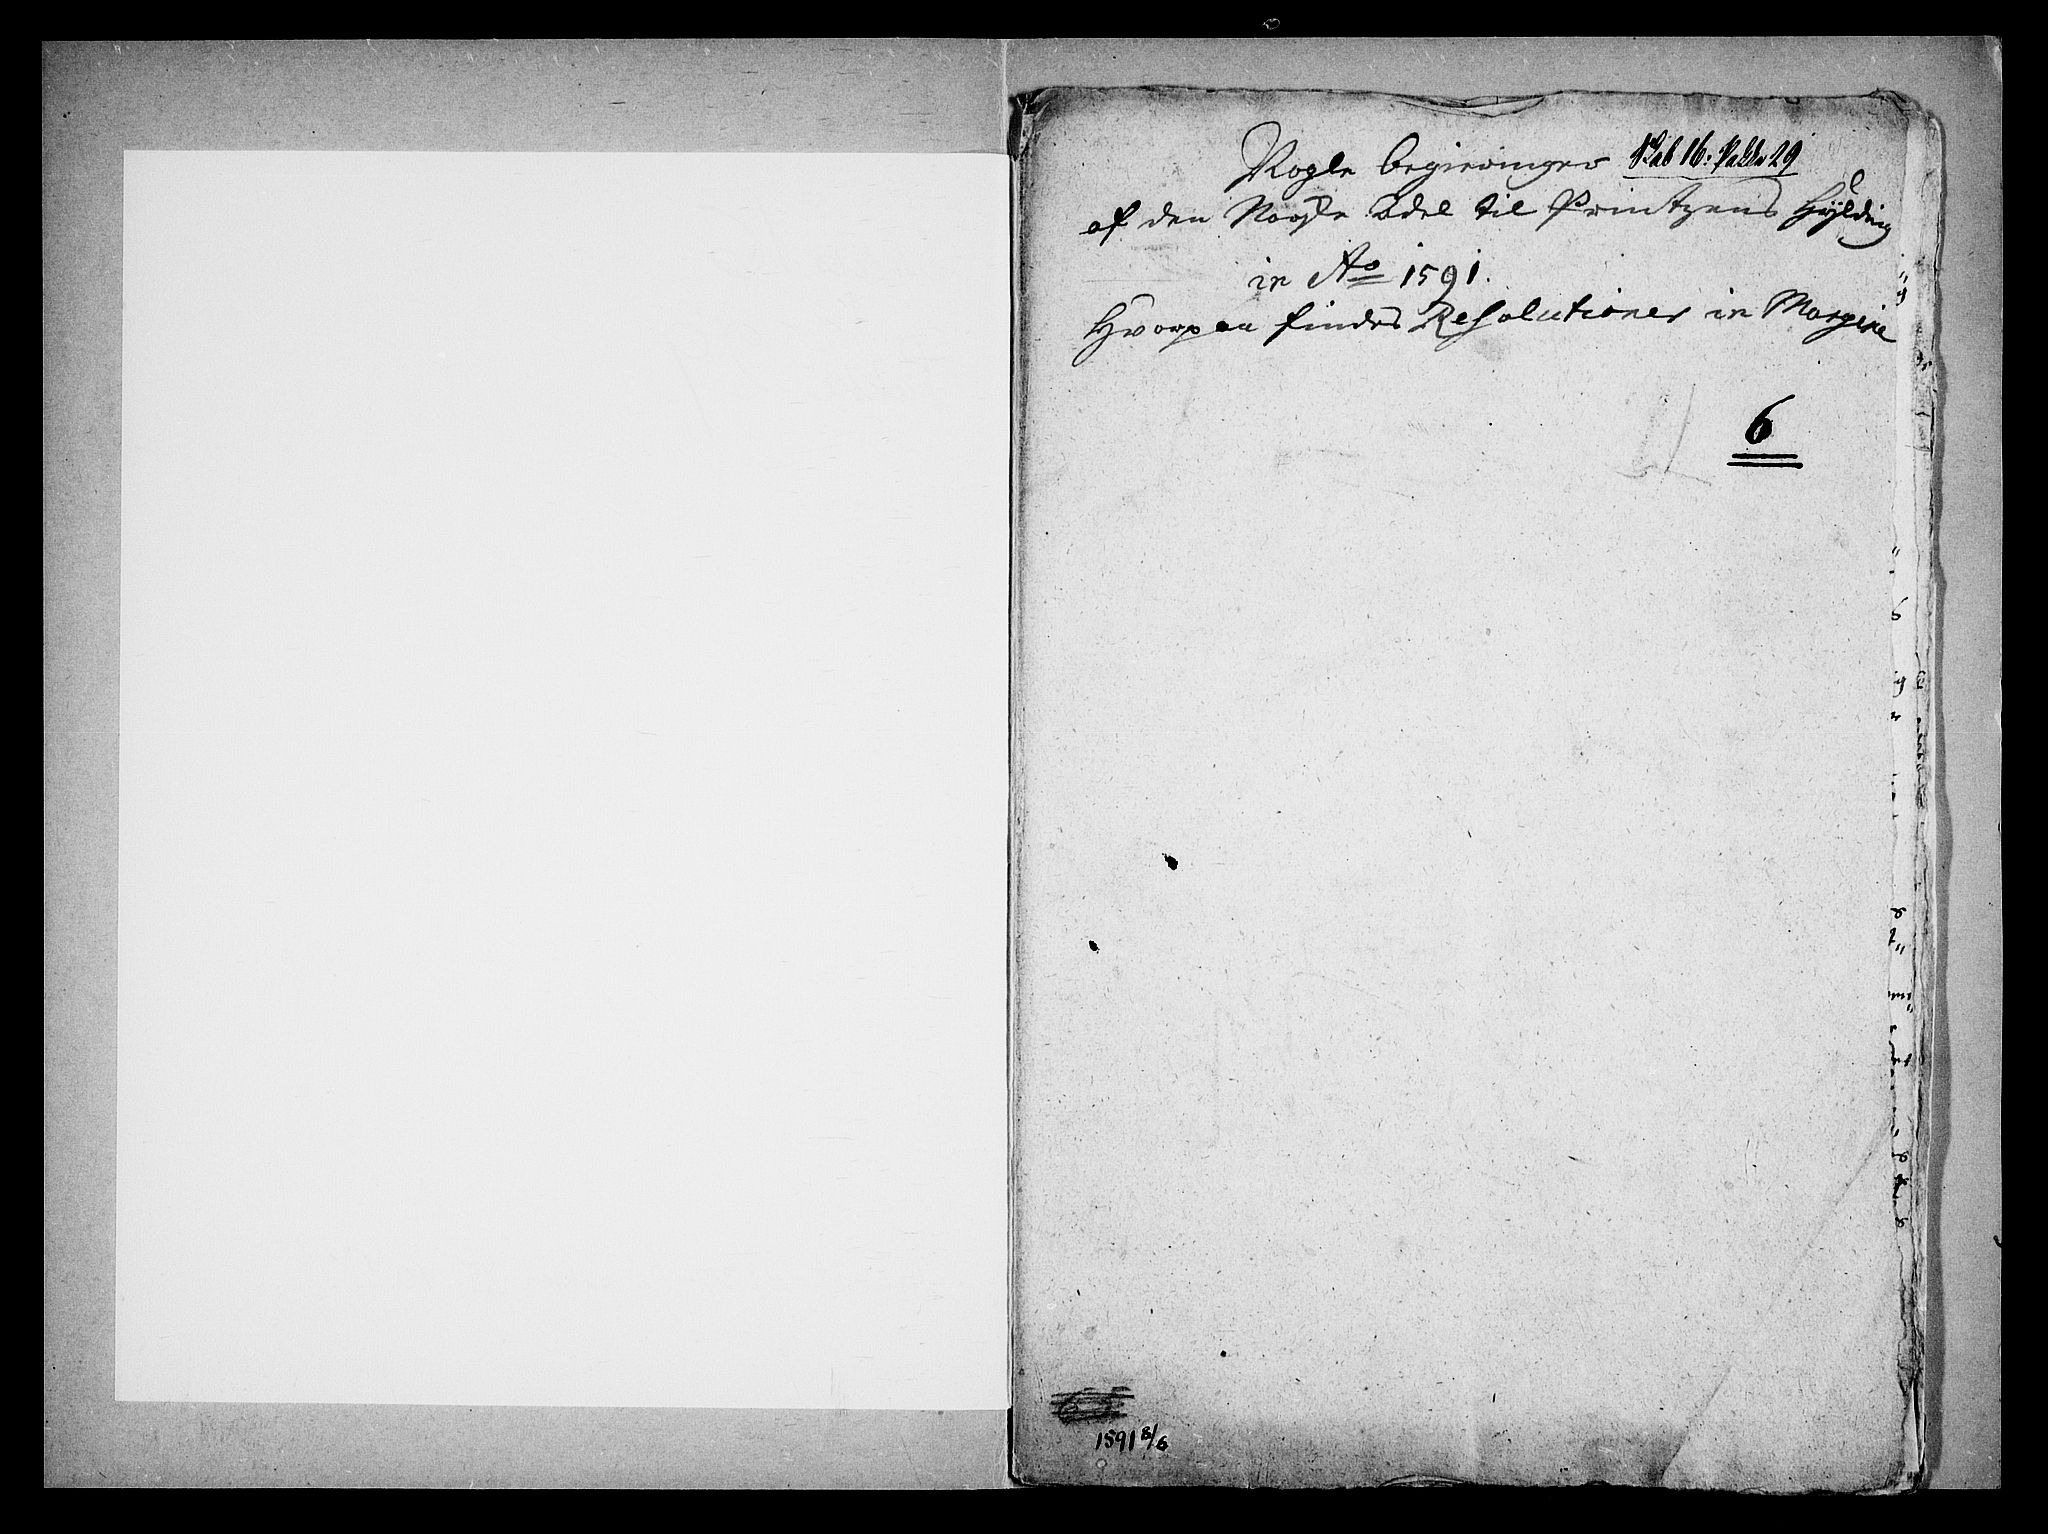 Nogle begieringer Skab 16. Pakke 29
af den Norske Adel til Printzens Hylding
in Ao 1591.
Hvorpaa findes Resolutioner in Margine
6
1591 8/6